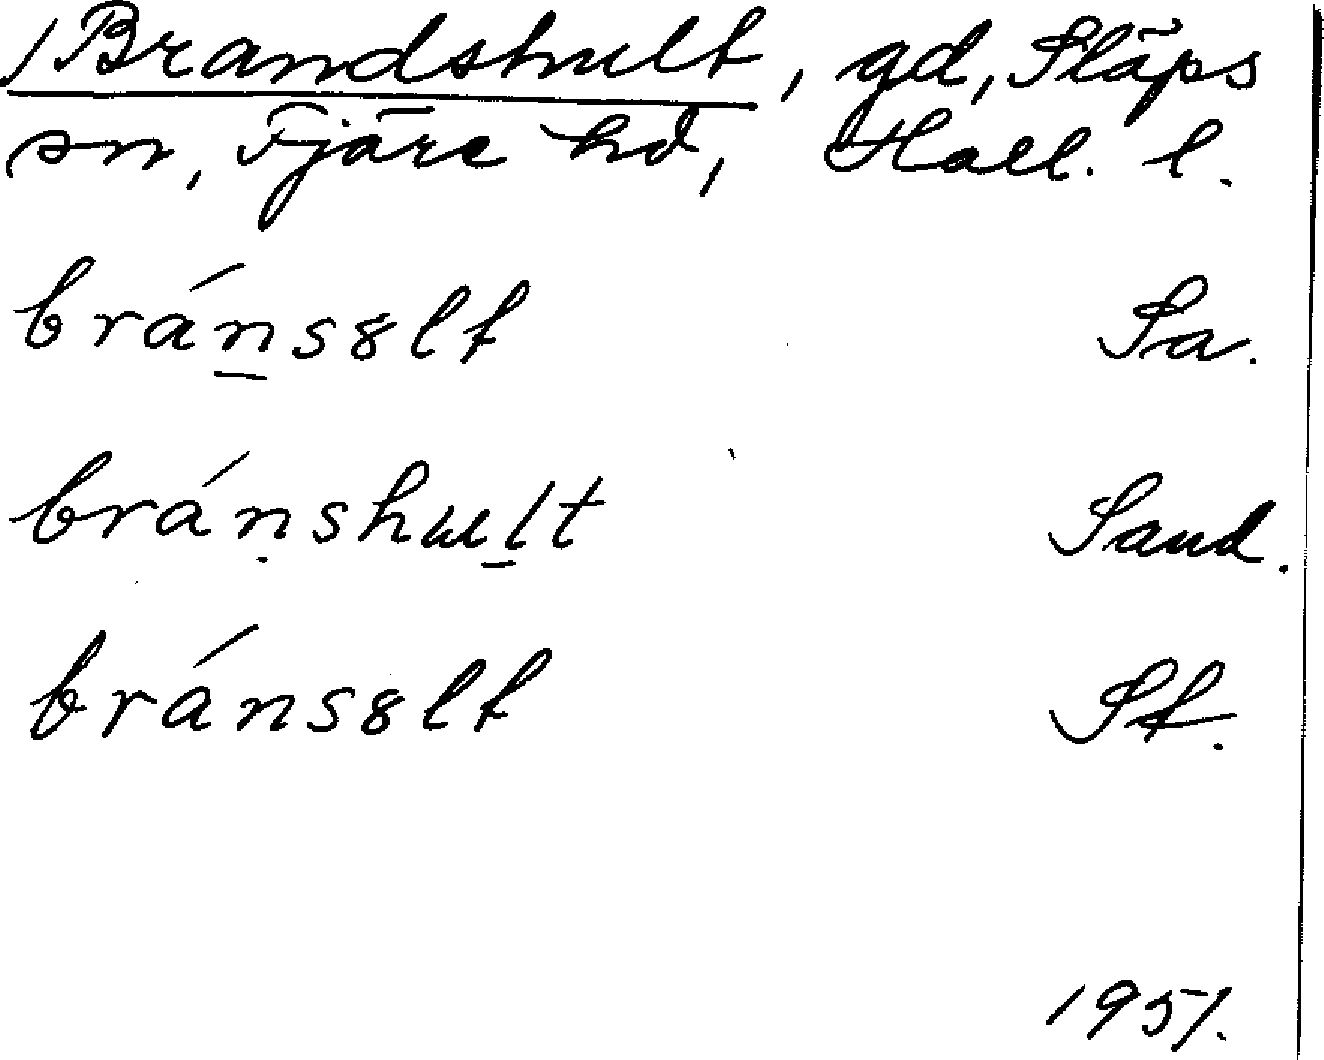 Brandshult, gd, Släps
sn, Fjäre hd, Hall. l.
brá̱ns8lt Sa.
bránshult Sand.
bráns8lt St.
1951.